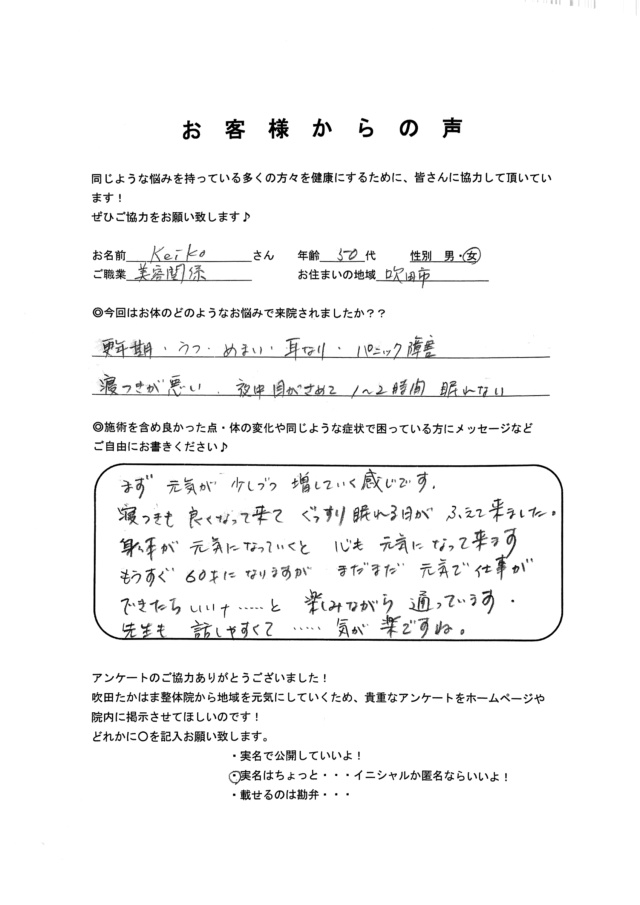 お客様からの声
同じような悩みを持っている多くの方々を健康にするために、皆さんに協力して頂いてい
ます！
ぜひご協力をお願い致します♪
お名前 Keiko さん 年齢 50 代 性別 男・女
ご職業 美容関係 お住まいの地域 吹田市
◎今回はお体のどのようなお悩みで来院されましたか？？
更年期・うつ・めまい・耳なり・パニック障害
寝つきが悪い、夜中目がさめて 1〜2時間 眠れない
◎施術を含め良かった点・体の変化や同じような症状で困っている方にメッセージなど
ご自由にお書きください♪
まず 元気が 少しづつ 増していく感じです。
寝つきも 良くなって来て ぐっすり眠れる日が ふえて来ました。
身体が 元気になっていくと 心も 元気に なって来ます
もうすぐ 60才になりますが まだまだ 元気で仕事が
できたらいいナ……と 楽しみながら 通っています。
先生も 話しやすくて …… 気が 楽ですね。
アンケートのご協力ありがとうございました！
吹田たかはま整体院から地域を元気にしていくため、貴重なアンケートをホームページや
院内に掲示させてほしいのです！
どれかに〇を記入お願い致します。
・実名で公開していいよ！
・実名はちょっと・・・イニシャルか匿名ならいいよ！
・載せるのは勘弁・・・